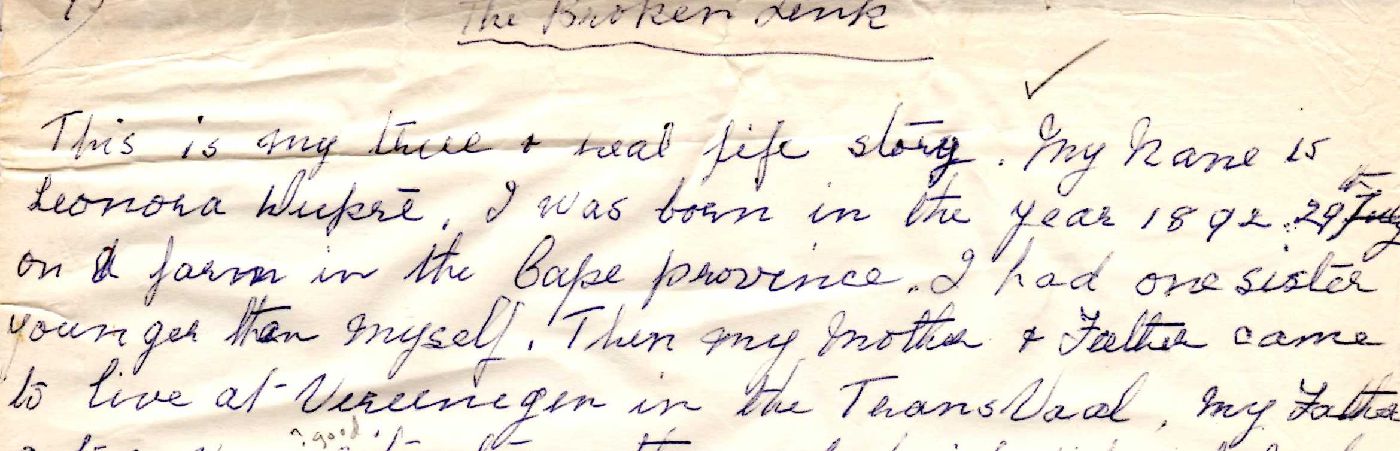 The Broken Link
This is my true + real life story. My Name is
Leonora Dupré, I was born in the year 1892. 29 July
on a farm in the Cape province. I had one sister
younger than myself. Then my Mother & Father came
to live at Vereenegen in the TransVaal, My Father
good